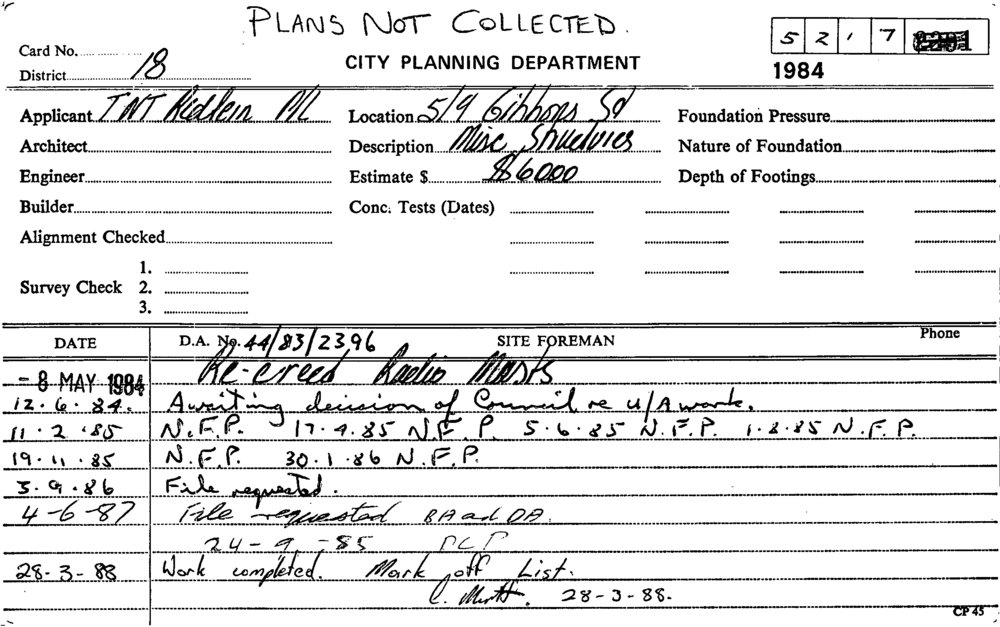 PLANS NOT COLLECTED.
Card No.
5 2 1 7
District 18
CITY PLANNING DEPARTMENT
1984
Applicant TNT P/L Location 5/9 Gibbons Sd Foundation Pressure
Architect Description Misc Structures Nature of Foundation
Engineer Estimate $ $6000 Depth of Footings
Builder Conc. Tests (Dates)
Alignment Checked
1.
Survey Check 2.
3.
DATE D.A. No. 44/83/2396 SITE FOREMAN Phone
- 8 MAY 1984 Re-creed Radio Masts
12. 6. 84. Awaiting decision of Council re U/A work.
11. 2. 85 N.F.P. 17.4.85 N.F.P. 5.6.85 N.F.P. 1.8.85 N.F.P.
19. 11. 85 N.F.P. 30.1.86 N.F.P.
3. 9. 86 File requested.
4-6-87 File requested BA and DA.
24-9-85 PCP
28-3-88 Work completed. Mark off List.
C. 28-3-88.
CP 45